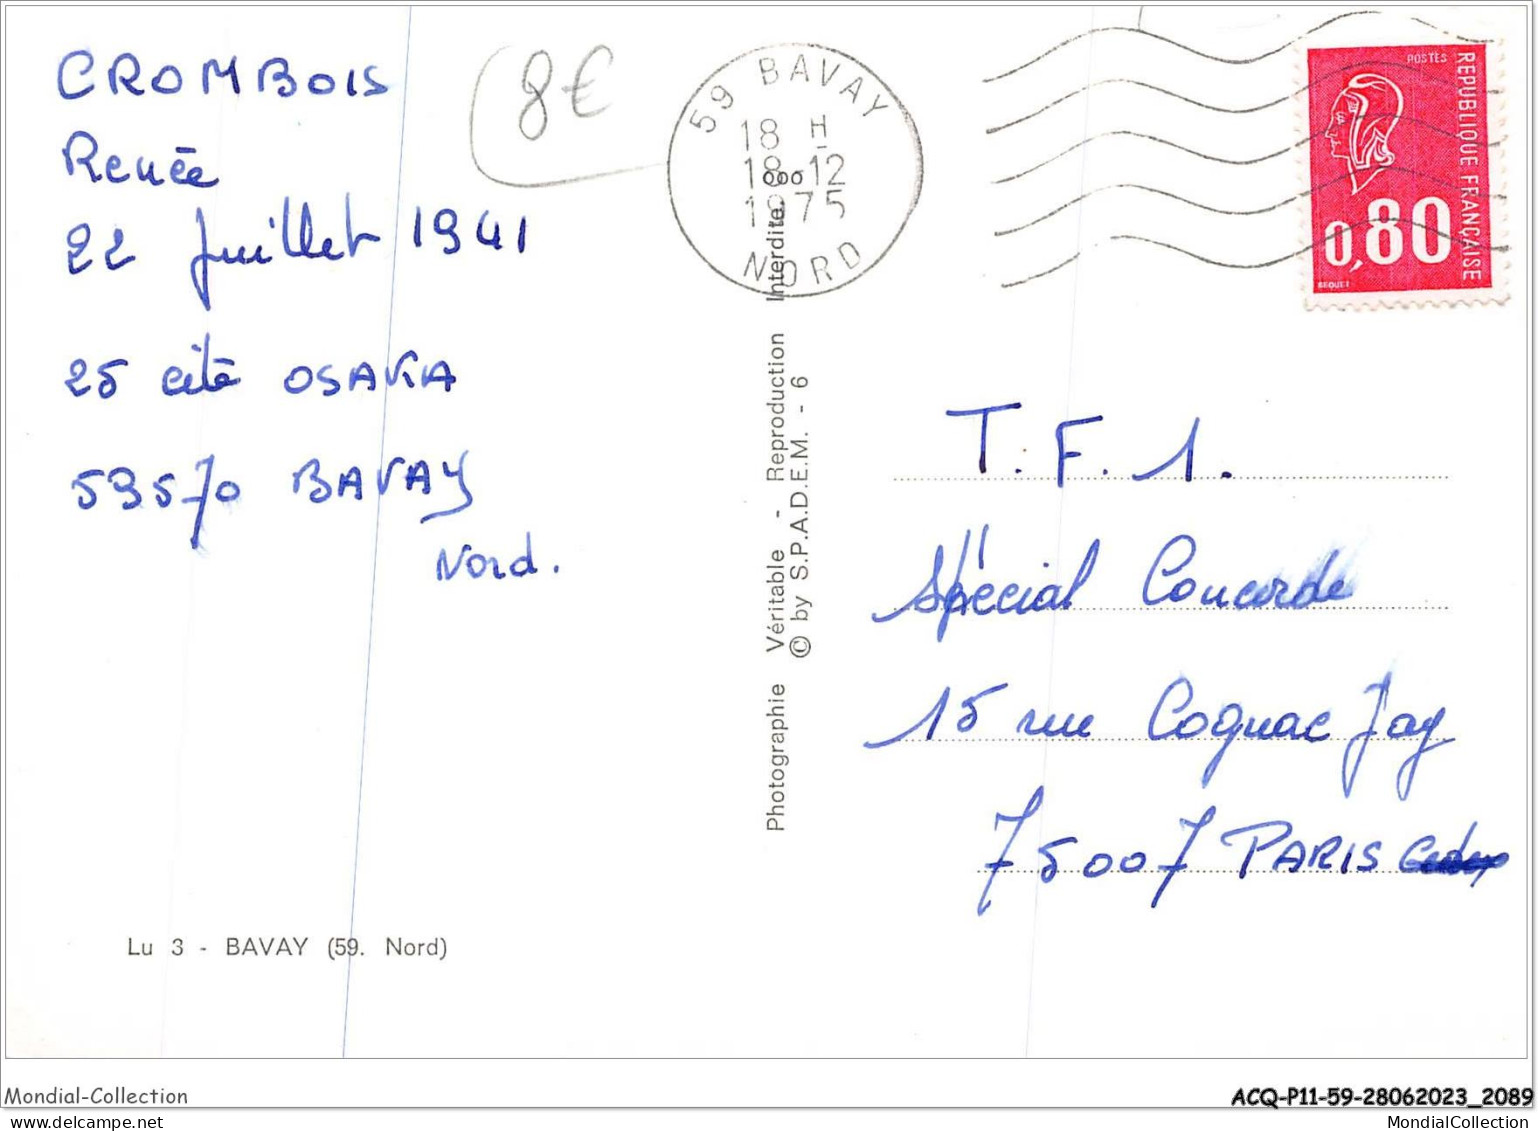 CROMBOIS
Renée
22 Juillet 1941
25 cité OSAKA
59570 BAVAY
Nord.
8€
59 BAVAY
18 H
18-12
1975
NORD
POSTES
REPUBLIQUE FRANÇAISE
0,80
BEQUET
Photographie Véritable - Reproduction Interdite.
© by S.P.A.D.E.M. - 6
T. F. 1.
Spécial Concorde
15 rue Cognac Jay
75007 PARIS
Lu 3 - BAVAY (59. Nord)
Mondial-Collection
ACQ-P11-59-28062023_2089
MondialCollection